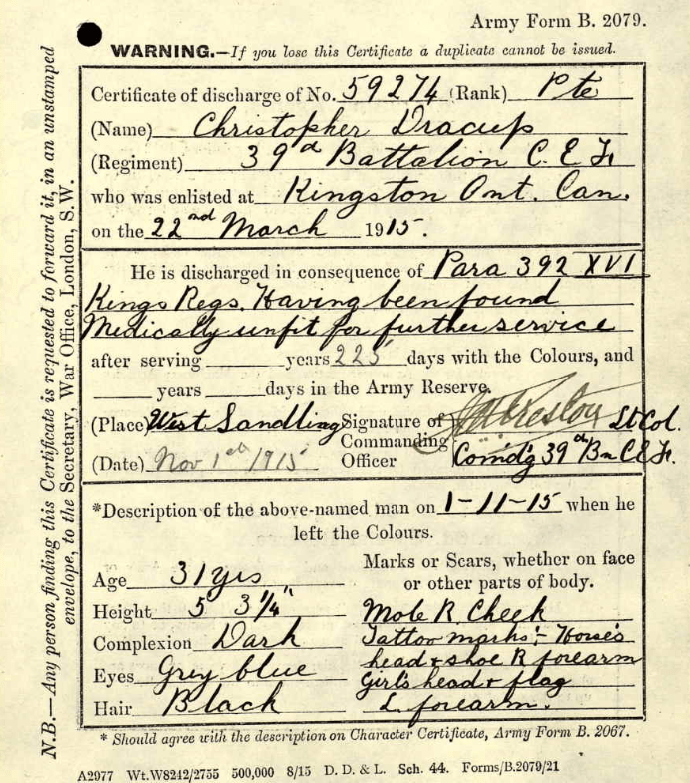 Army Form B. 2079.
WARNING.—If you lose this Certificate a duplicate cannot be issued.
Certificate of discharge of No. 59274 (Rank) Pte
(Name) Christopher Dracup
(Regiment) 39th Battalion C. E. F.
who was enlisted at Kingston Ont. Can.
on the 22nd March 1915.
He is discharged in consequence of Para 392 XVI
Kings Regs. Having been found
Medically unfit for further service
after serving years 225 days with the Colours, and
years days in the Army Reserve.
(Place) West Sandling Signature of Commanding Officer Preston Lt Col.
(Date) Nov 1st 1915 Comdg 39th Bn C.E.F.
*Description of the above-named man on 1-11-15 when he
left the Colours.
Age 31 yrs
Height 5 3 1/4"
Complexion Dark
Eyes Grey blue
Hair Black
Marks or Scars, whether on face
or other parts of body.
Mole R. Cheek
Tattoo marks:- Horse's
head & shoe R forearm
Girl's head & flag
L. forearm.
* Should agree with the description on Character Certificate, Army Form B. 2067.
A2977 Wt.W8242/2755 500,000 8/15 D. D. & L. Sch. 44. Forms/B.2079/21
N.B.—Any person finding this Certificate is requested to forward it, in an unstamped
envelope, to the Secretary, War Office, London, S.W.